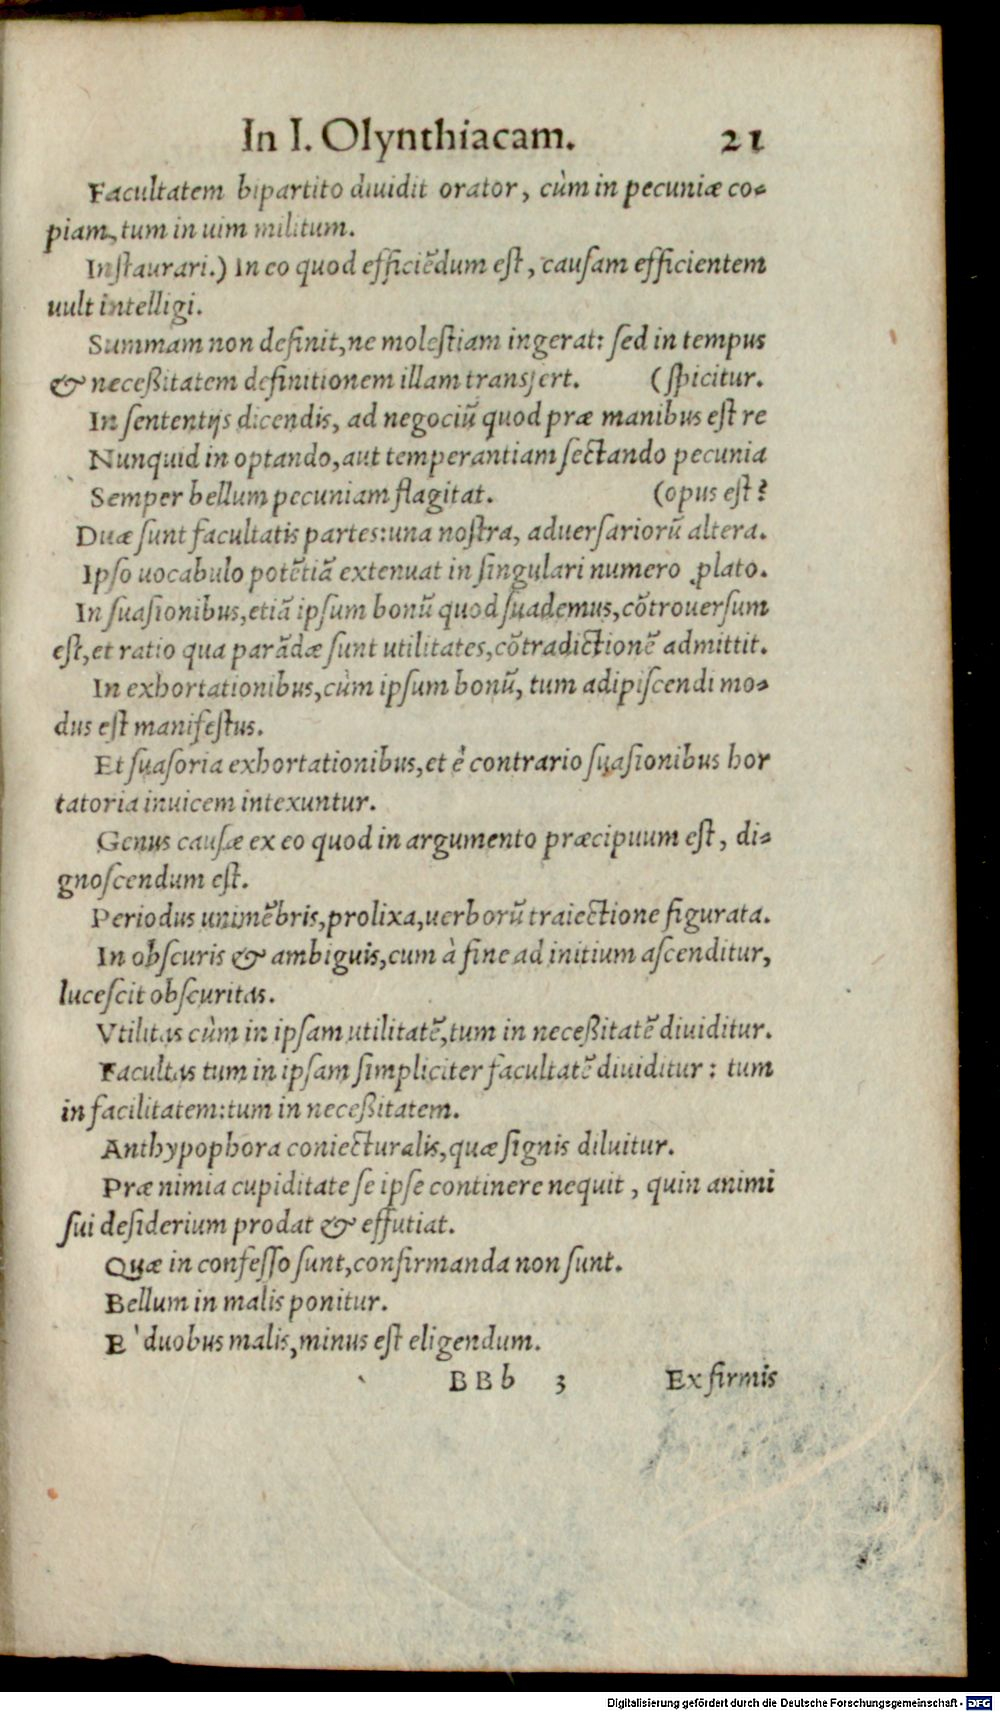 In I. Olynthiacam. 21
Facultatem bipartito diuidit orator, cùm in pecuniæ co-
piam, tum in uim militum.
Instaurari.) In eo quod efficiēdum est, causam efficientem
uult intelligi.
Summam non definit, ne molestiam ingerat: sed in tempus
& neceßitatem definitionem illam transfert. (spicitur.
In sententijs dicendis, ad negociū quod præ manibus est re
Nunquid in optando, aut temperantiam sectando pecunia
Semper bellum pecuniam flagitat. (opus est?
Duæ sunt facultatis partes: una nostra, aduersariorū altera.
Ipso uocabulo potētiā extenuat in singulari numero ꝓlato.
In suasionibus, etiā ipsum bonū quod suademus, cōtrouersum
est, et ratio qua parādæ sunt utilitates, cōtradictionē admittit.
In exhortationibus, cùm ipsum bonū, tum adipiscendi mo-
dus est manifestus.
Et suasoria exhortationibus, et è contrario suasionibus hor
tatoria inuicem intexuntur.
Genus causæ ex eo quod in argumento præcipuum est, di-
gnoscendum est.
Periodus unimēbris, prolixa, uerborū traiectione figurata.
In obscuris & ambiguis, cum à fine ad initium ascenditur,
lucescit obscuritas.
Vtilitas cùm in ipsam utilitatē, tum in neceßitatē diuiditur.
Facultas tum in ipsam simpliciter facultatē diuiditur: tum
in facilitatem: tum in neceßitatem.
Anthypophora coniecturalis, quæ signis diluitur.
Præ nimia cupiditate se ipse continere nequit, quin animi
sui desiderium prodat & effutiat.
Quæ in confesso sunt, confirmanda non sunt.
Bellum in malis ponitur.
E' duobus malis, minus est eligendum.
BBb 3 Ex firmis
Digitalisierung gefördert durch die Deutsche Forschungsgemeinschaft - DFG